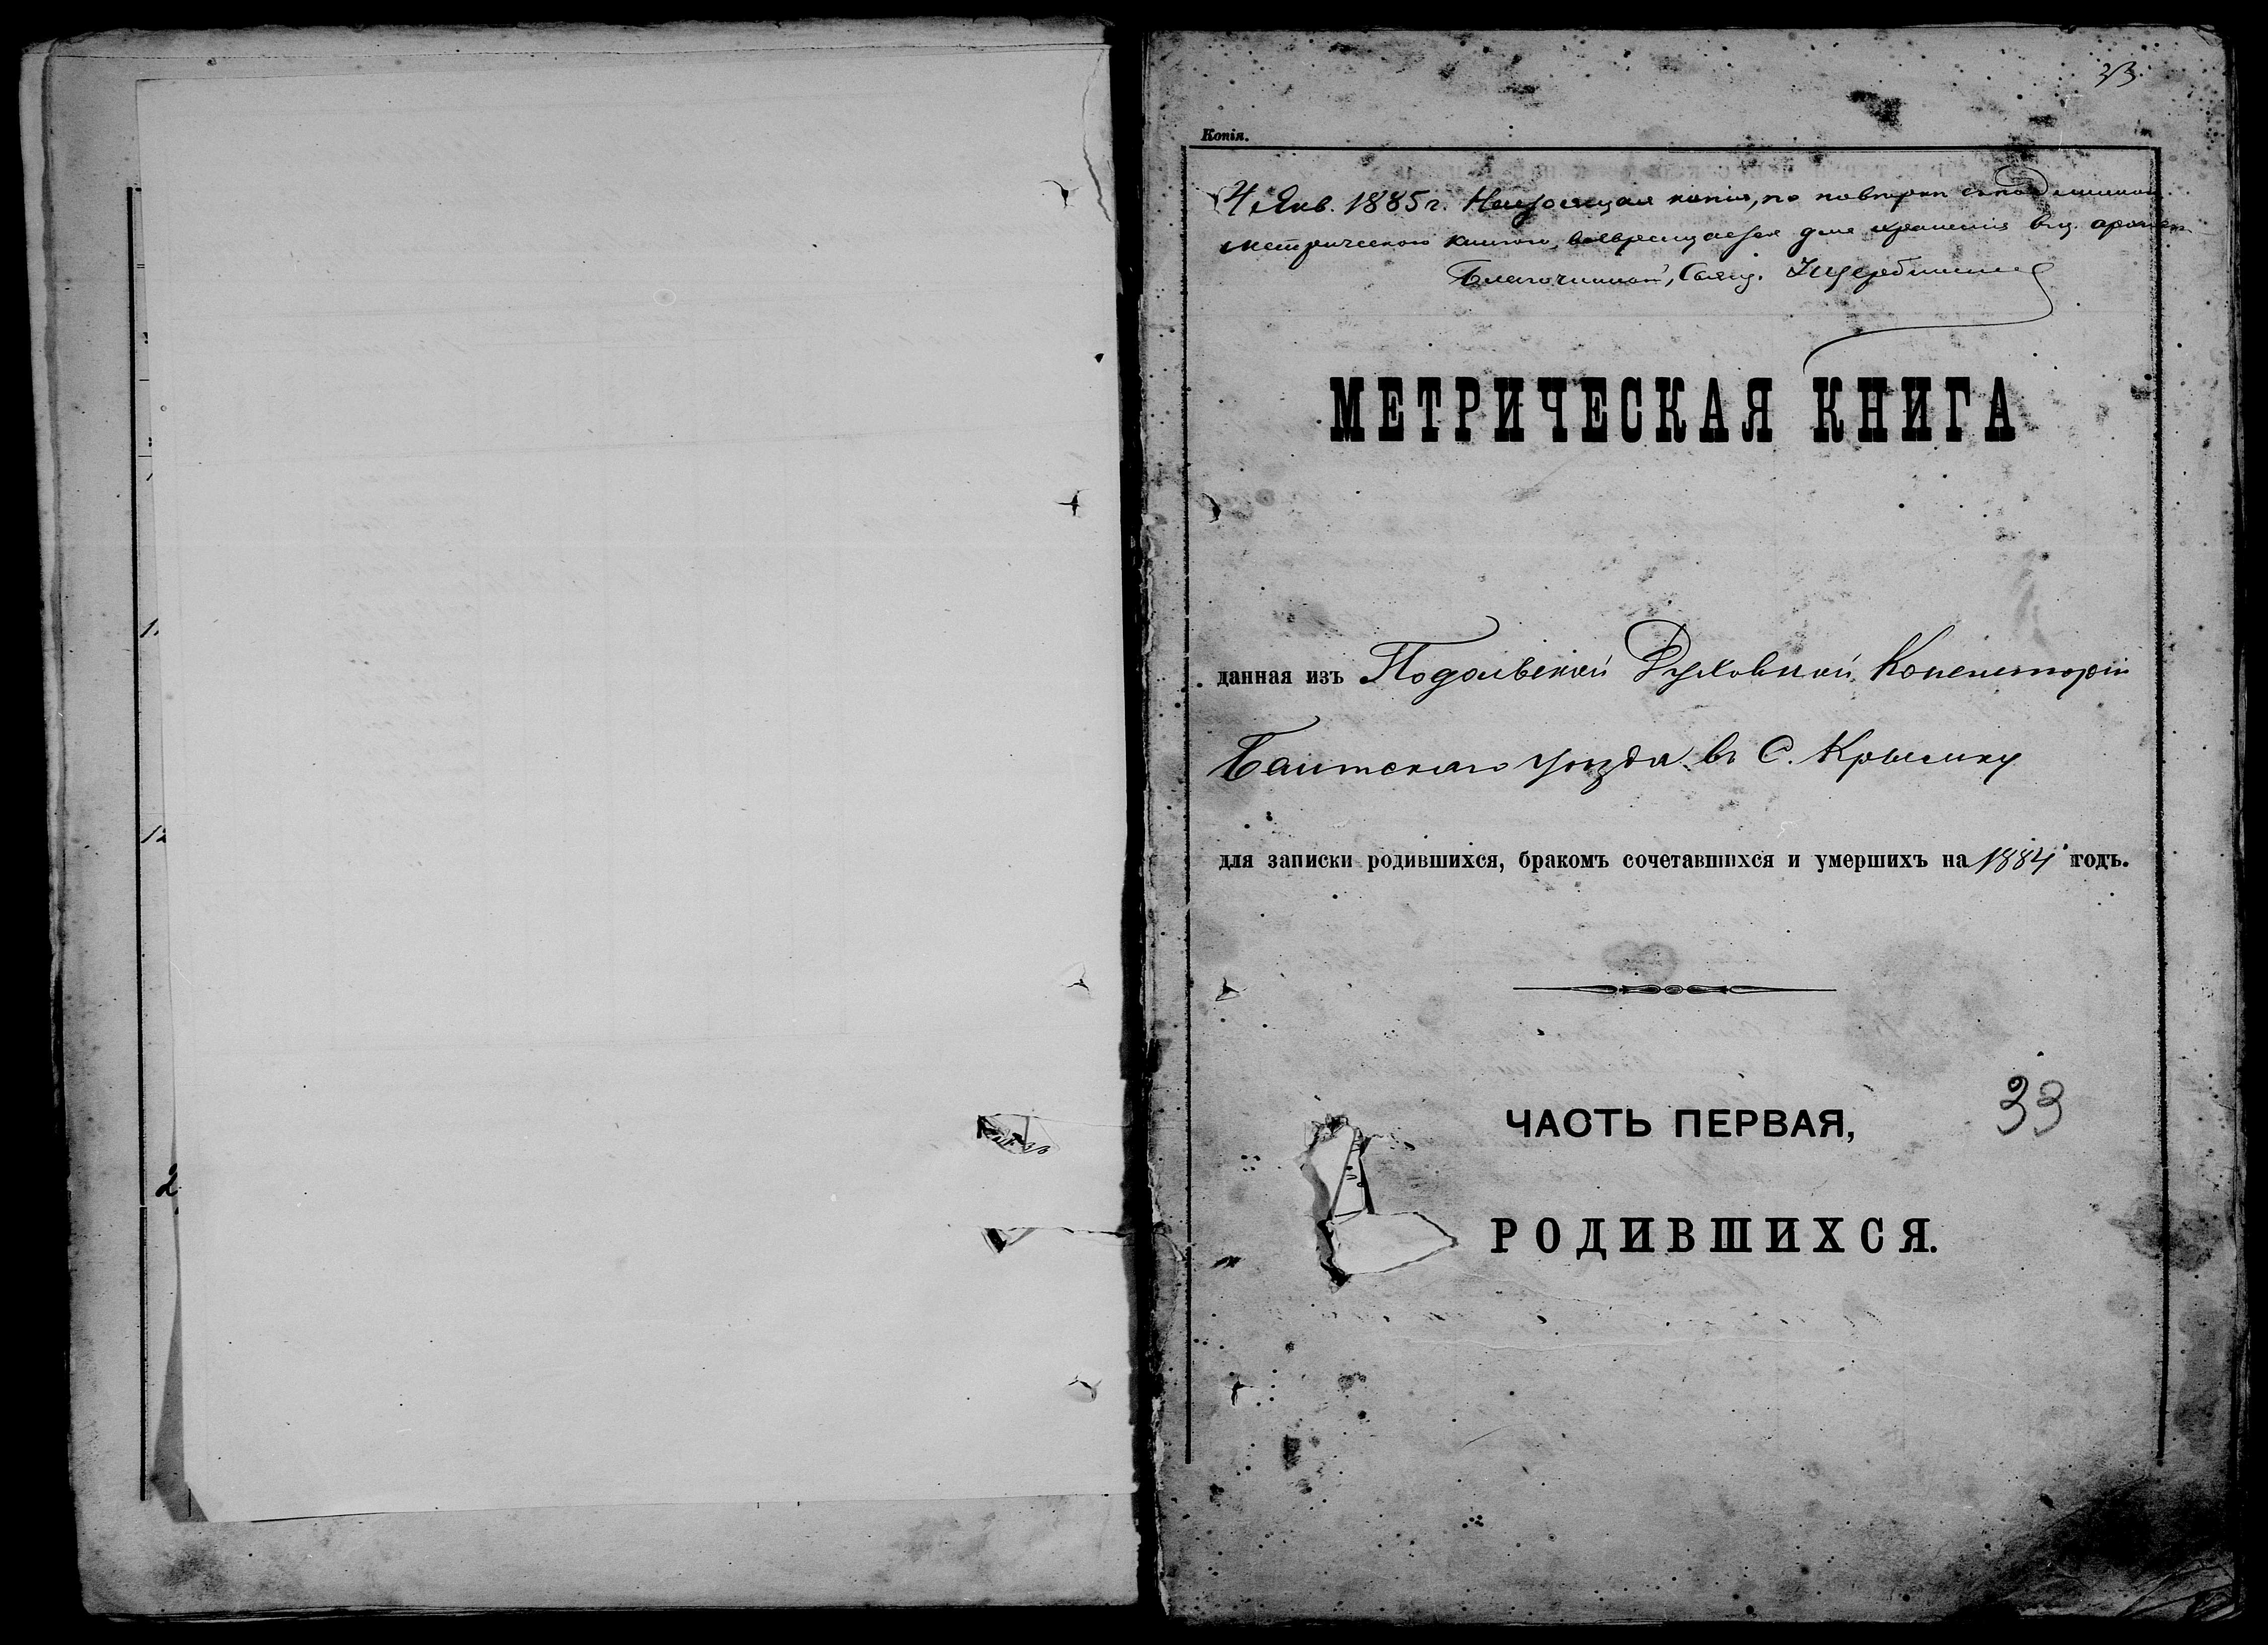 33
Копія.
4 Янв. 1885 г. Настоящая копія, по поверкѣ съ подлинною
метрическою книгою, возвращается для храненія въ ц. архивѣ
Благочинный, Свящ.
МЕТРИЧЕСКАЯ КНИГА
данная изъ Подольской Духовной Консисторіи
Балтскаго уѣзда въ С. Крымку
для записки родившихся, бракомъ сочетавшихся и умершихъ на 1884 годъ.
ЧАСТЬ ПЕРВАЯ,
33
РОДИВШИХСЯ.